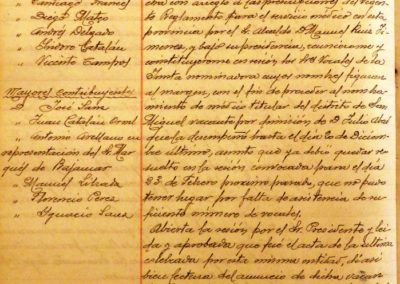 " Santiago Ramel
" Diego Mateo
" Andrés Delgado
" Isidro Catalán
" Vicente Campos
Mayores contribuyentes
" José
" Juan Catalán Oral
" Antonio Arellano en
representación del Sr. Mar
qués de Bajamar
" Manuel
" Florencio Perez
" Ygnacio
con arreglo a las prescripciones del vigen
te Reglamento para el servicio médico en esta
provincia por el Sr. Alcalde D. Manuel Ruiz Ji
menez, y bajo su presidencia, reunieronse y
constituyeronse en sesión los Sres. Vocales de la
Junta nominadora cuyos nombres figuran
al margen, con el fin de proceder al nombra
miento de médico titular del distrito de San
Miguel vacante por dimisión de D. Julio
que la desempeñó hasta el día 20 de Diciem
bre último, asunto que ya debió quedar re
suelto en la sesión convocada para el día
23 de Febrero proximo pasado, que no pudo
tener lugar por falta de asistencia de su
ficiente número de vocales.
Abierta la sesión por el Sr. Presidente y lei
da y aprobada que fué el acta de la última
celebrada por esta misma entidad, dióse tam
bien lectura del anuncio de dicha vacan